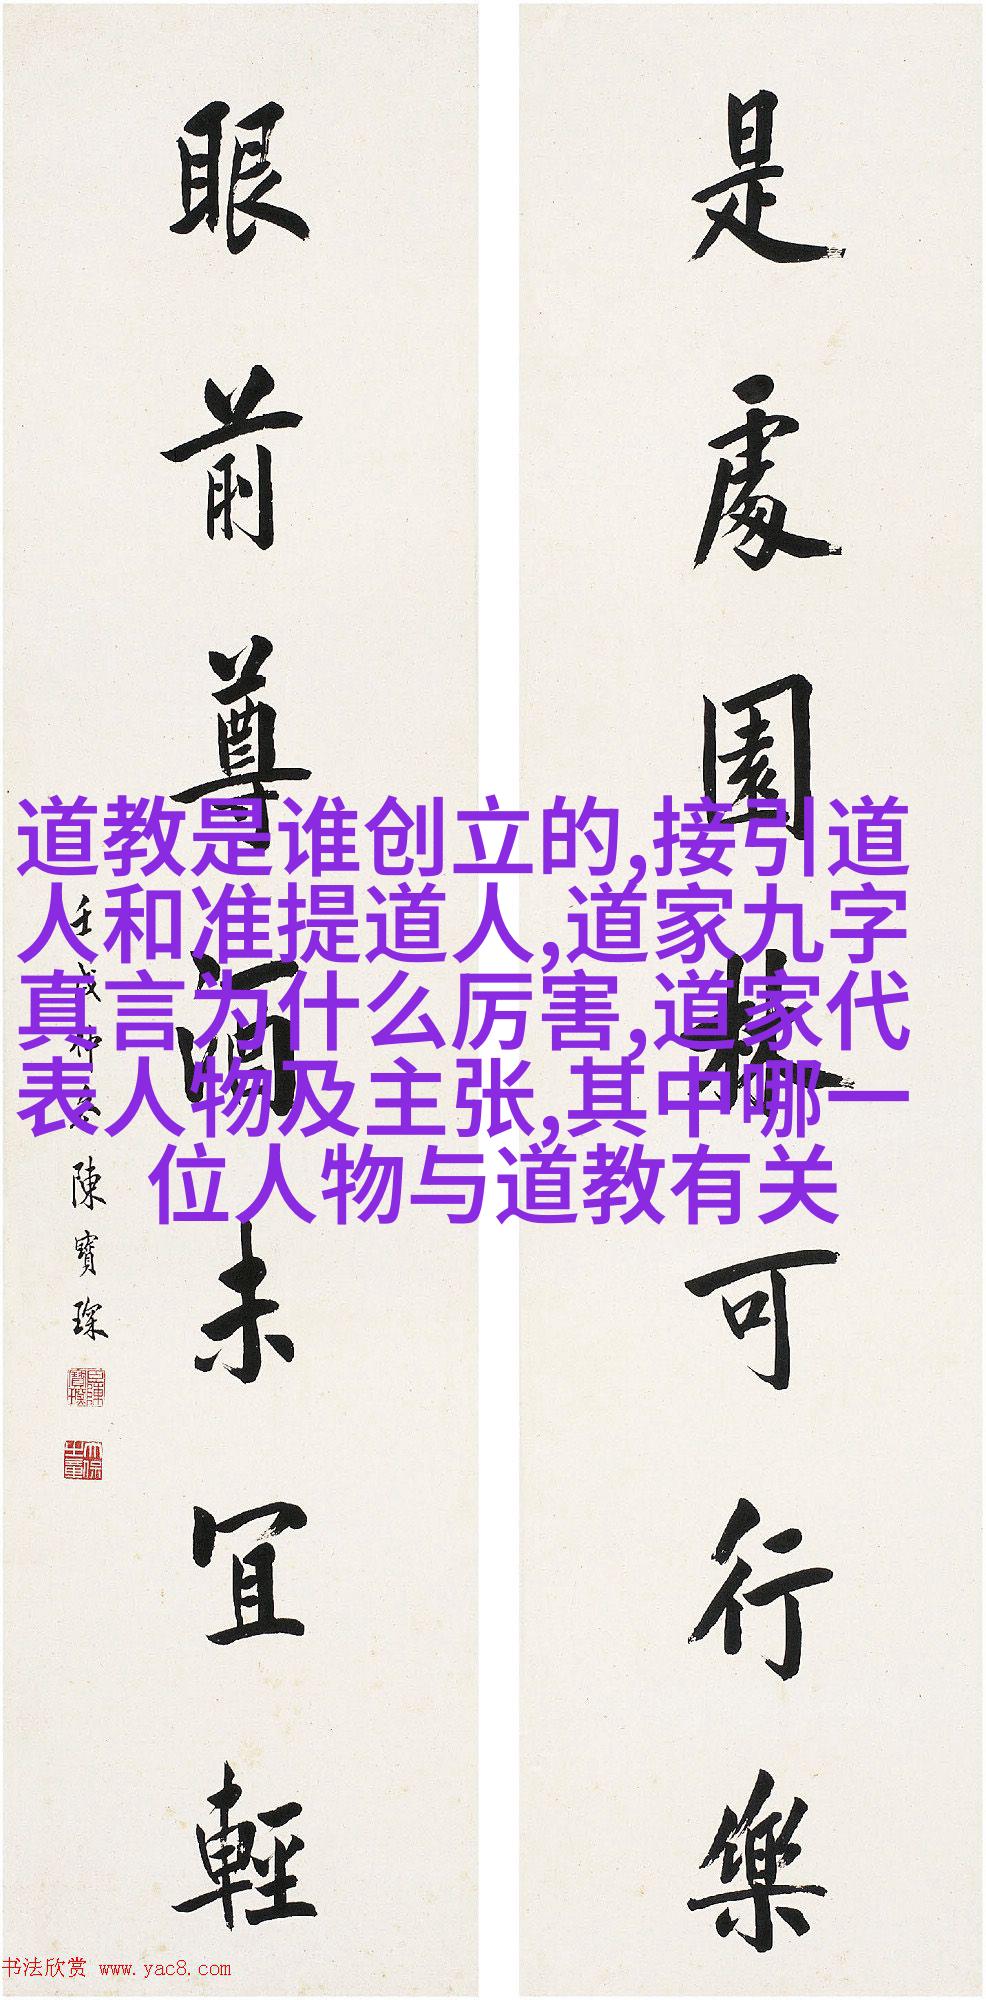 是處園林可行樂
眼前尊酒未宜輕
壬戌仲冬陳寶琛
道教是谁创立的,接引道
人和准提道人,道家九字
真言为什么厉害,道家代
表人物及主张,其中哪一
位人物与道教有关
书法欣赏 www.yac8.com